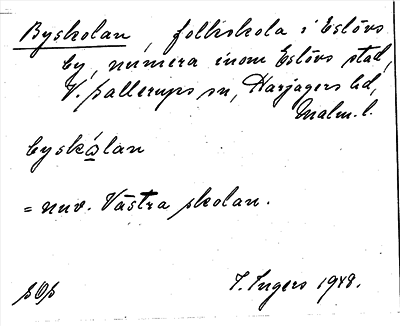 Byskolan, folkskola i Eslövs
by, numera inom Eslövs stad,
V. Sallerups sn, Harjagers hd,
Malm. l.
byskὼlan
= nuv. Västra skolan.
sOs
I. Ingers 1948.